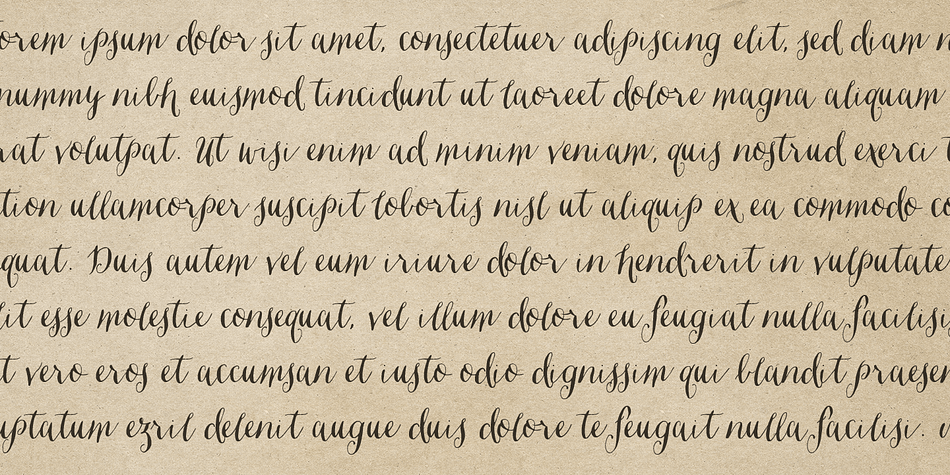 orem ipsum dolor sit amet, consectetuer adipiscing elit, sed diam n
nummy nibh euismod tincidunt ut laoreet dolore magna aliquam
rat volutpat. Ut wisi enim ad minim veniam, quis nostrud exerci t
tion ullamcorper suscipit lobortis nisl ut aliquip ex ea commodo co
quat. Duis autem vel eum iriure dolor in hendrerit in vulputate
lit esse molestie consequat, vel illum dolore eu feugiat nulla facilisi
t vero eros et accumsan et iusto odio dignissim qui blandit praesen
uptatum ezril delenit augue duis dolore te feugait nulla facilisi.